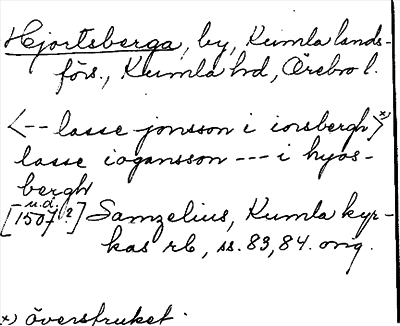 Hjortsberga, by, Kumla lands-
förs., Kumla hd, Örebro l.
<-- lasse jonsson i iorsbergh>x)
lasse iogansson --- i hyos-
bergh
u.d.
[1507?] Samzelius, Kumla kyr-
kas rb, ss. 83, 84. orig.
x) överstruket.